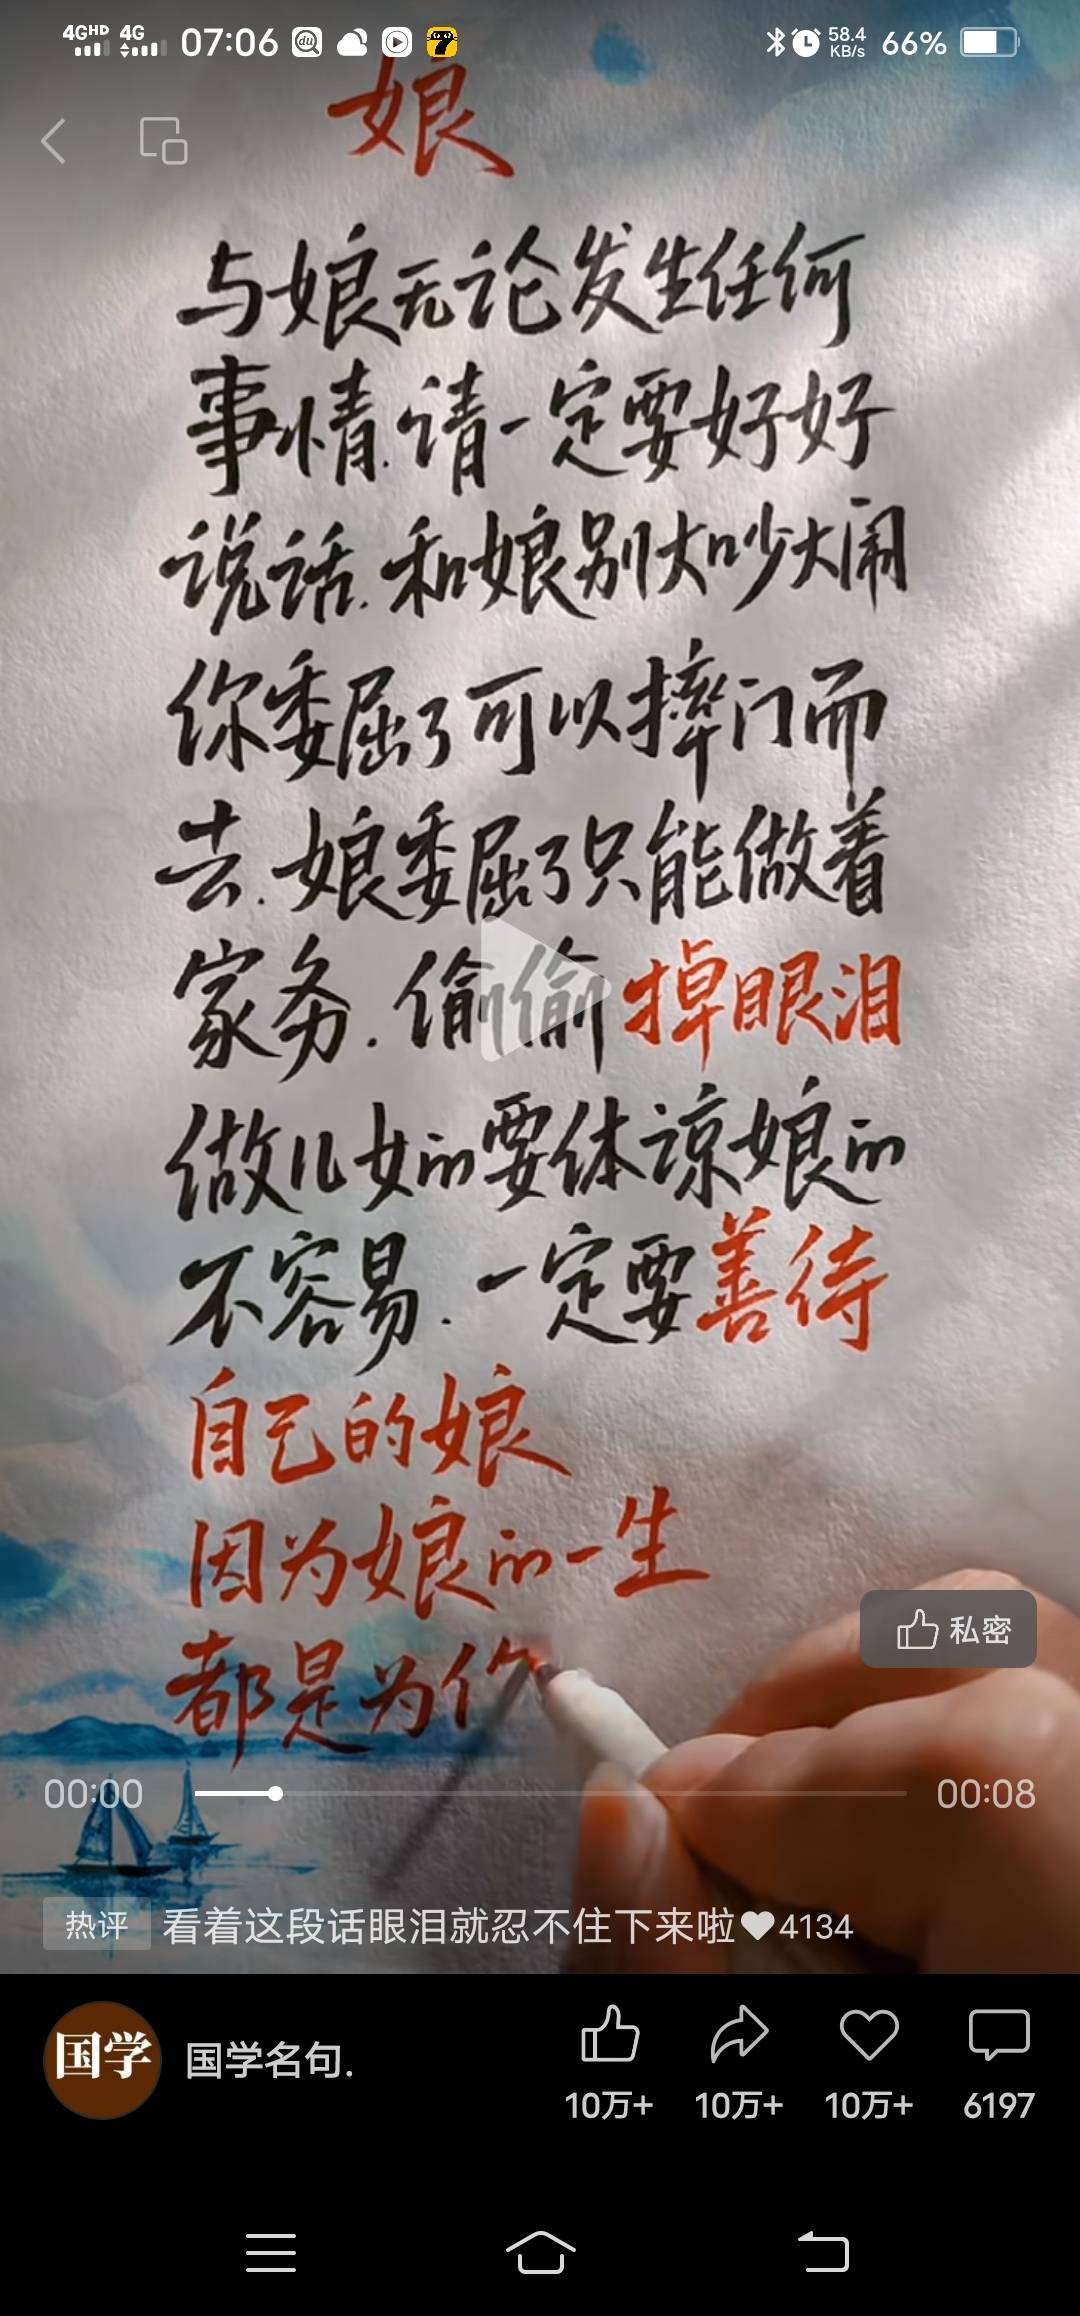 4GHD 4G 07:06 58.4 KB/s 66%
娘
与娘无论发生任何
事情.请一定要好好
说话.和娘别大吵大闹
你委屈了可以摔门而
去.娘委屈了只能做着
家务.偷偷掉眼泪
做儿女的要体谅娘的
不容易.一定要善待
自己的娘
因为娘的一生
都是为你
私密
00:00 00:08
热评 看着这段话眼泪就忍不住下来啦 4134
国学 国学名句.
10万+ 10万+ 10万+ 6197